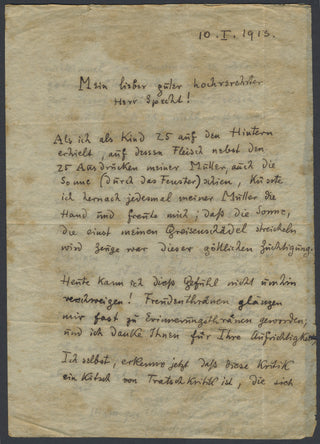 10. I. 1913.
Mein lieber guter hochverehrter
Herr Specht!
Als ich als Kind 25 auf den Hintern
erhielt, auf dessen Fleisch nebst den
25 Ausdrücken meiner Mutter, auch die
Sonne (durch das Fenster) schien, küsste
ich hernach jedesmal meiner Mutter die
Hand und freute mich, daß die Sonne,
die einst meinen Greisenschädel streicheln
wird zeuge war dieser göttlichen Züchtigung.
Heute kann ich dieß Gefühl nicht umhin
verschweigen! Freudenthränen glänzen
mir fast zu Erinnerungsthränen geworden;
und ich danke Ihnen für Ihre Aufrichtigkeit
Ich selbst, erkenne jetzt daß diese Kritik
ein Kitsch von Tratsch Kritik ist, die sich